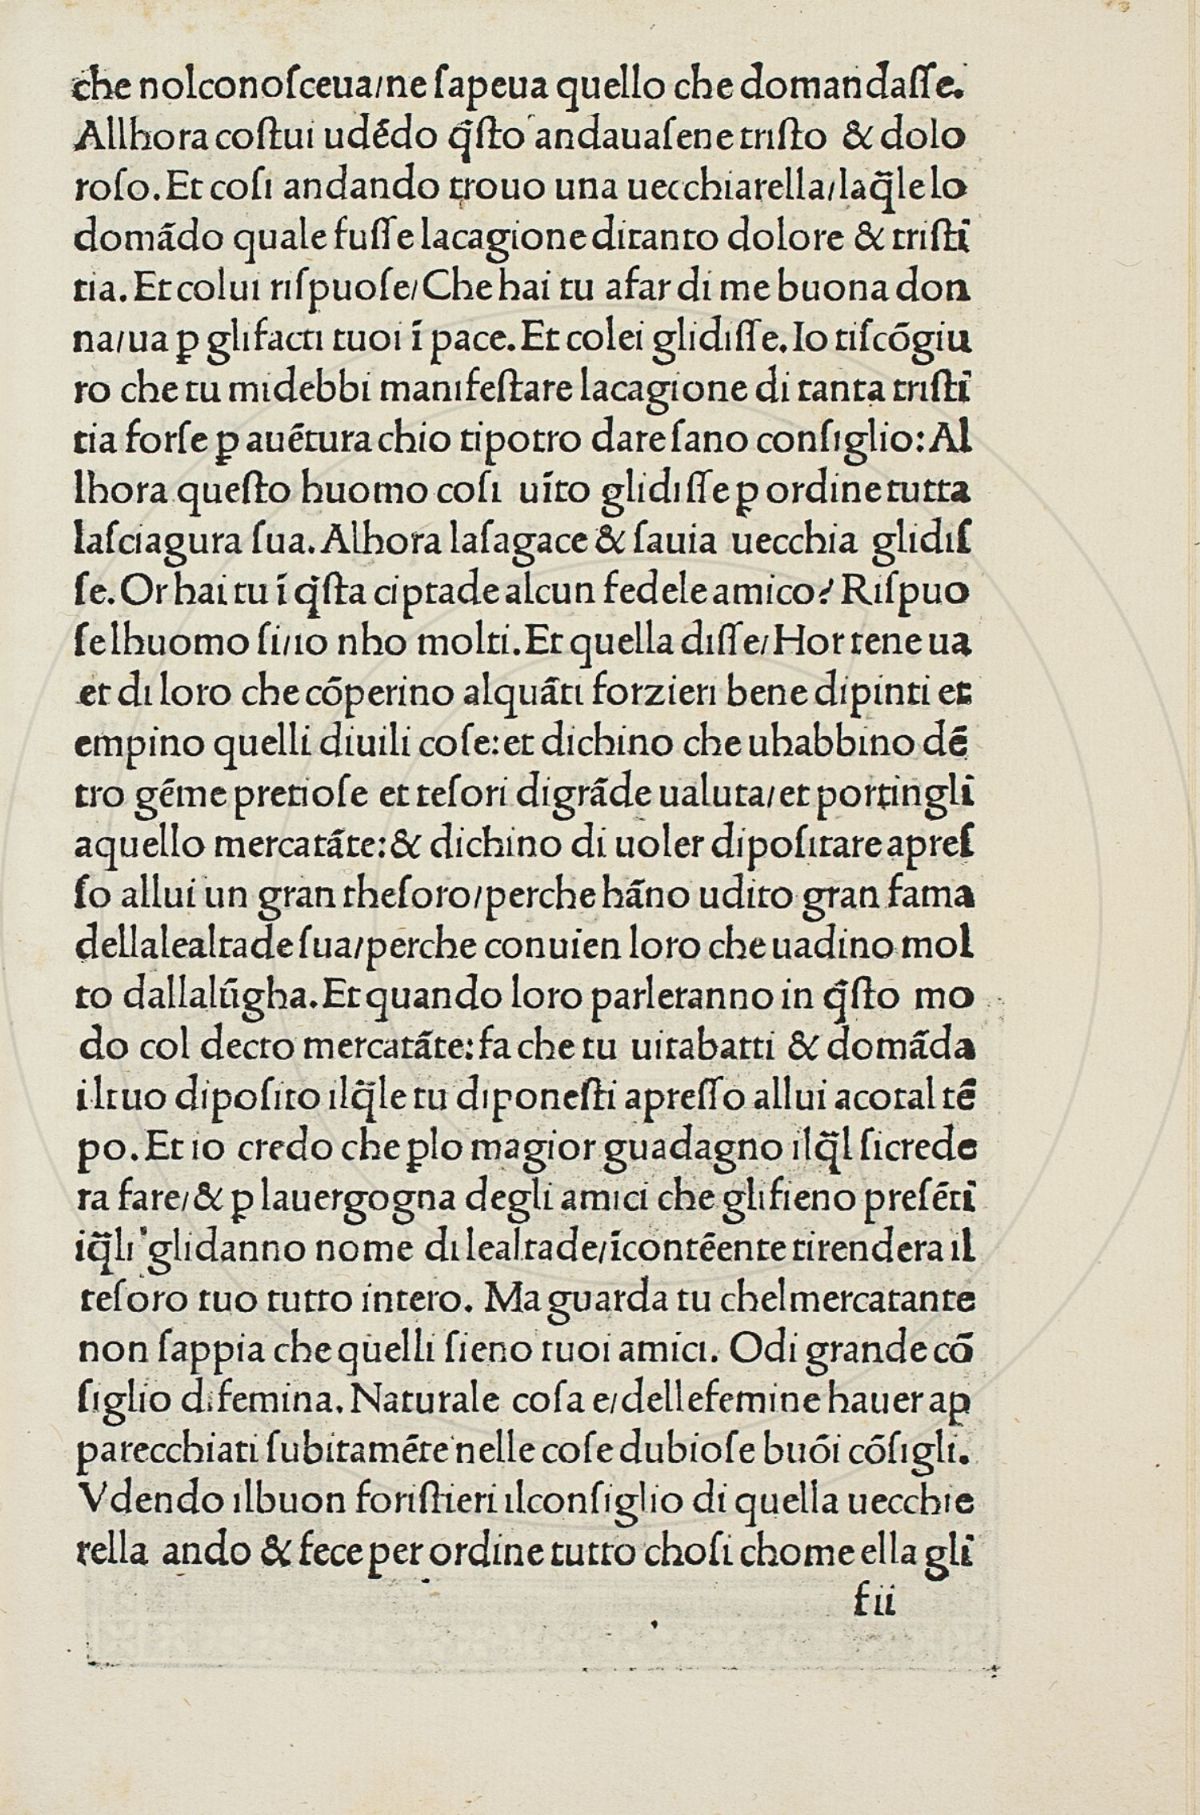 che nolconoſceua/ne ſapeua quello che domandaſſe.
Allhora coſtui udēdo q̄ſto andauaſene triſto & dolo
roſo. Et coſi andando trouo una uecchiarella/laq̄le lo
domādo quale fuſſe lacagione ditanto dolore & triſti
tia. Et colui riſpuoſe/Che hai tu afar di me buona don
na/ua ꝑ gli facti tuoi ī pace. Et colei glidiſſe. Io tiſcōgiu
ro che tu midebbi manifeſtare lacagione di tanta triſti
tia forſe ꝑ auētura chio tipotro dare ſano conſiglio: Al
lhora queſto huomo coſi uīto glidiſſe ꝑ ordine tutta
laſciagura ſua. Alhora laſagace & ſauia uecchia glidiſ
ſe. Or hai tu ī q̄ſta ciptade alcun fedele amico? Riſpuo
ſe lhuomo ſi/io nho molti. Et quella diſſe/Hor tene ua
et di loro che cōperino alquāti forzieri bene dipinti et
empino quelli diuili coſe: et dichino che uhabbino dē
tro gēme pretioſe et teſori digrāde ualuta/et portingli
aquello mercatāte: & dichino di uoler dipoſitare apreſ
ſo allui un gran theſoro/perche hāno udito gran fama
dellalealtade ſua/perche conuien loro che uadino mol
to dallalūgha. Et quando loro parleranno in q̄ſto mo
do col decto mercatāte: fa che tu uitabatti & domāda
iltuo dipoſito ilq̄le tu diponeſti apreſſo allui acotal tē
po. Et io credo che ꝑlo magior guadagno ilq̄l ſicrede
ra fare/& ꝑ lauergogna degli amici che gli fieno preſēti
iq̄li glidanno nome di lealtade/īcontēente tirendera il
teſoro tuo tutto intero. Ma guarda tu chelmercatante
non ſappia che quelli ſieno tuoi amici. Odi grande cō
ſiglio di femina. Naturale coſa e/delle femine hauer ap
parecchiati ſubitamēte nelle coſe dubioſe buōi cōſigli.
Vdendo ilbuon foriſtieri ilconſiglio di quella uecchie
rella ando & fece per ordine tutto choſi chome ella gli
fii